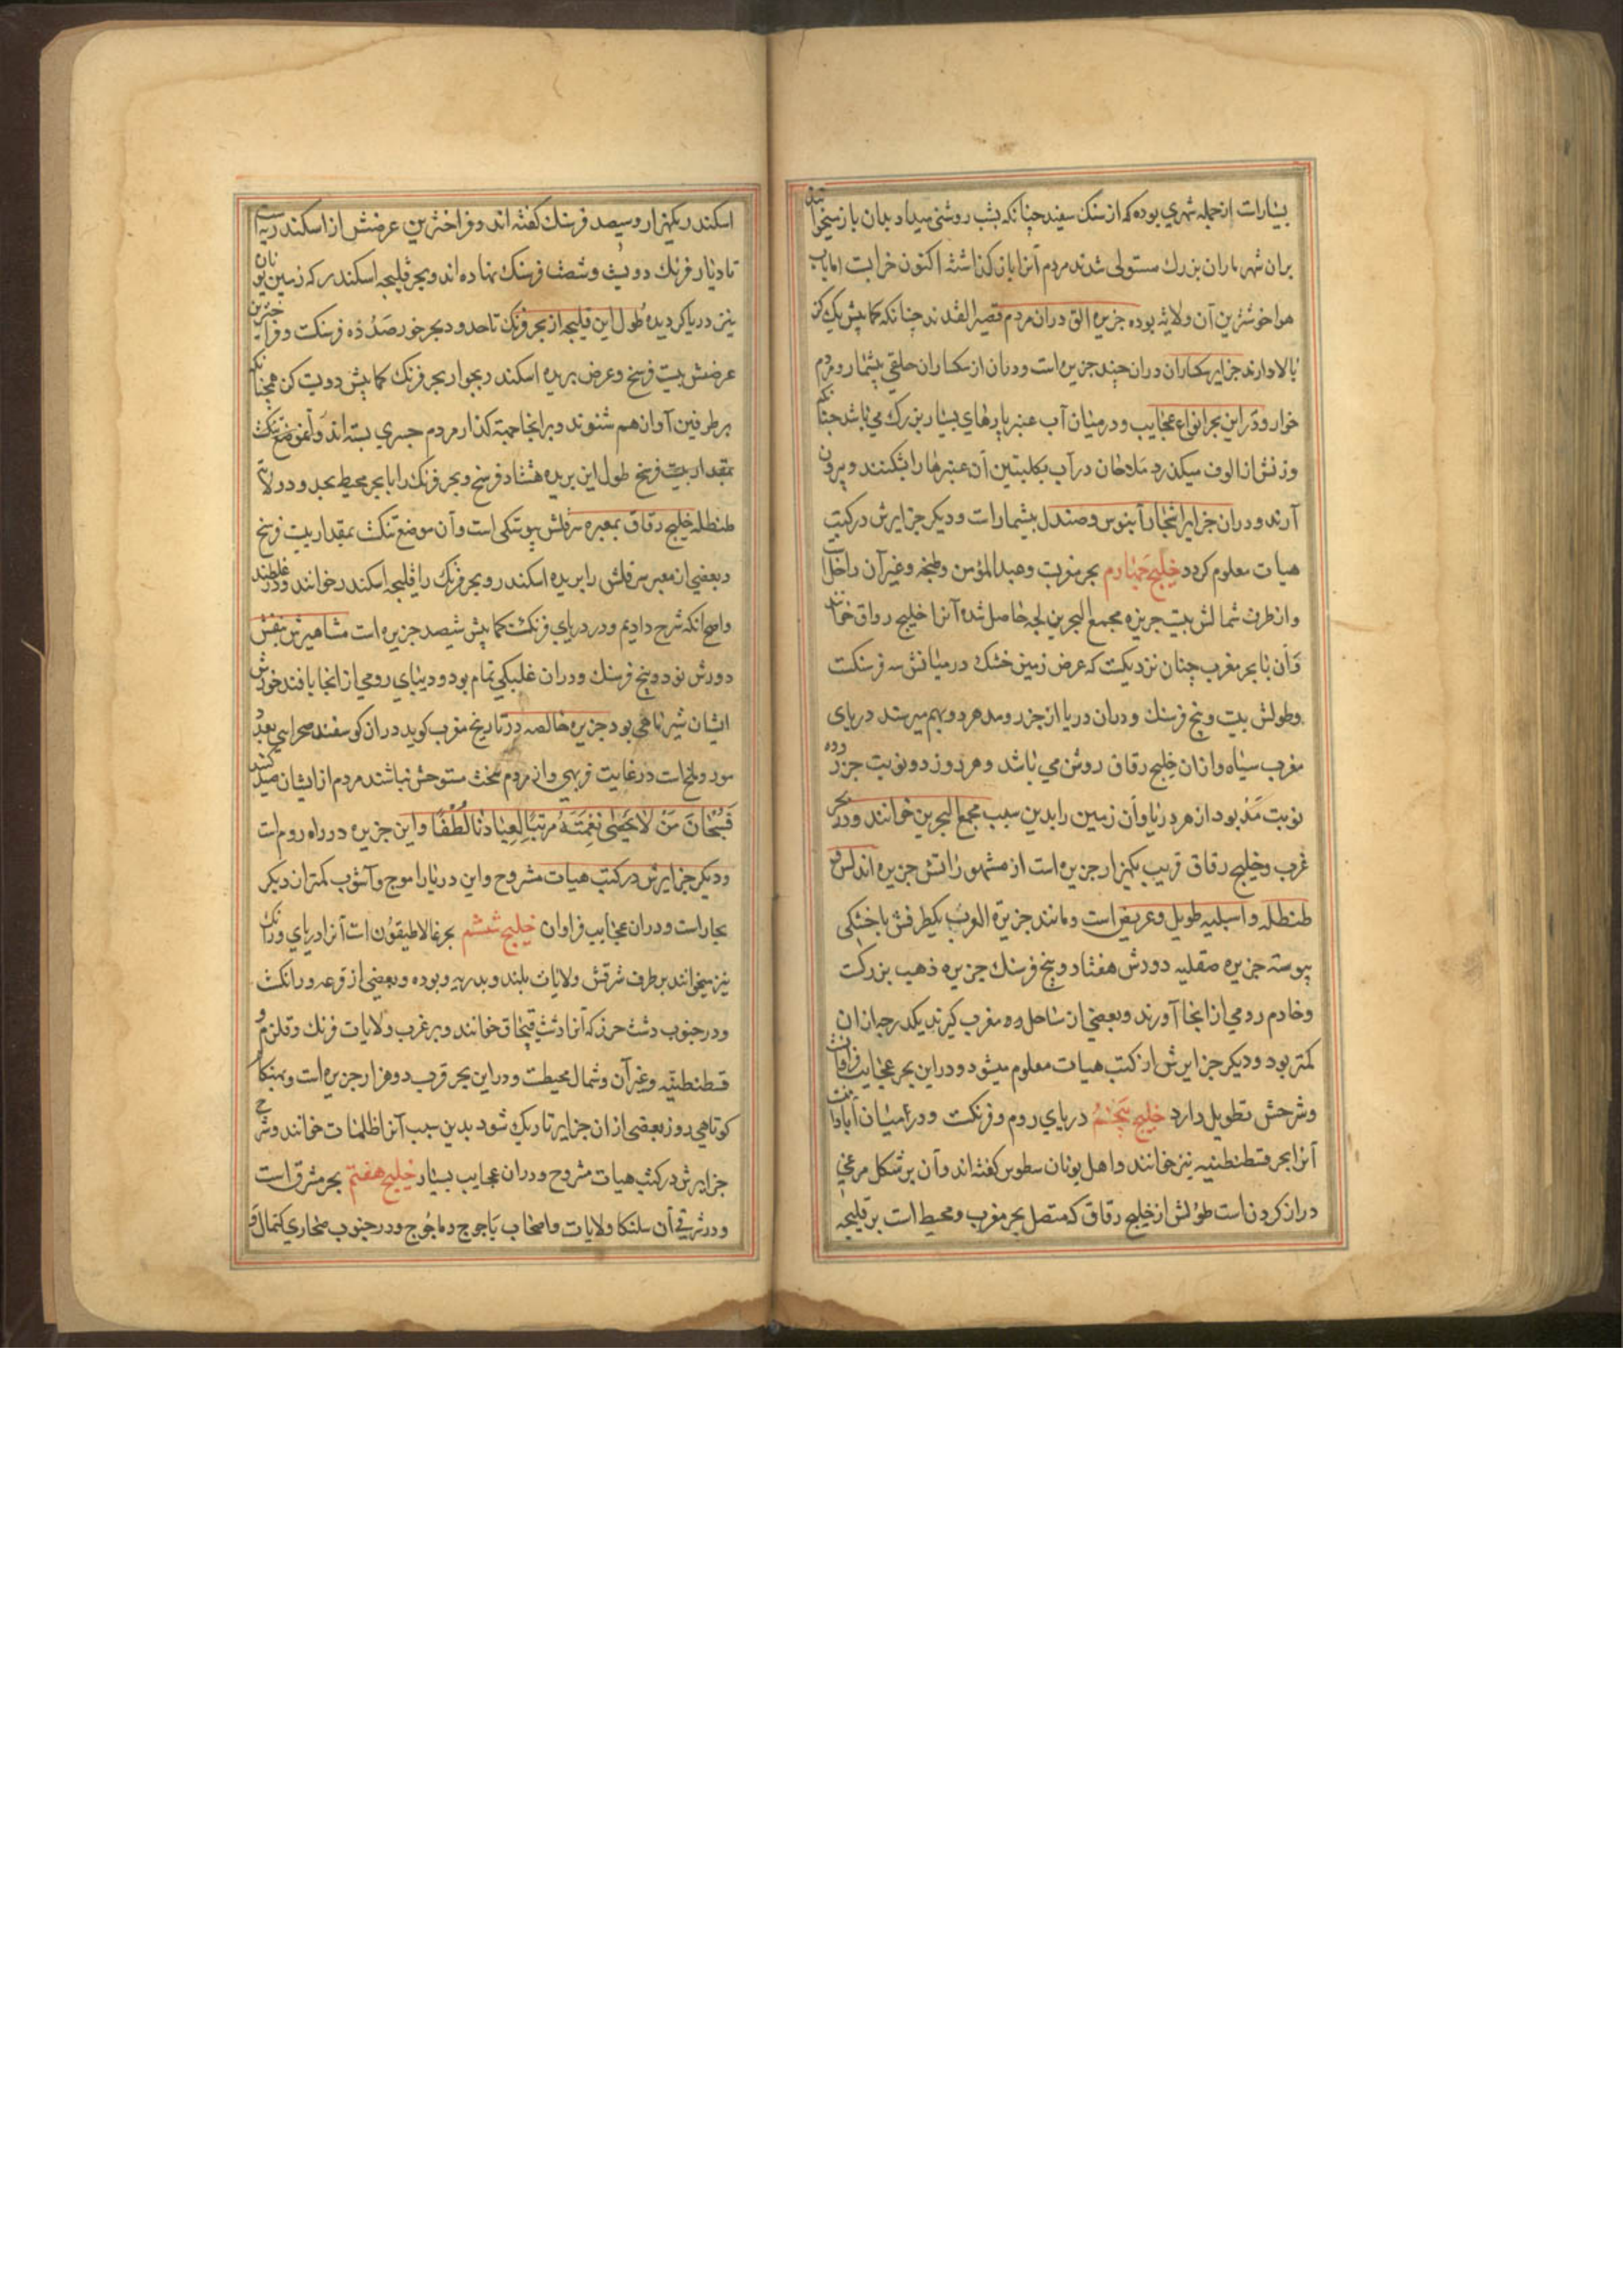 بسیارات ازجمله شهري بوده که از سنك سفید چنانکه بشب روشنی میداد بدان باز میخواندند
بران شهر ماران بزرك مستولی شدند مردم آنرا بازن کذاشته اکنون خرابست اما باب
هوا خوشترین آن ولایه بوده جزیره الق دران مردم قصیرالقدند چنانکه کمابیش یك کز
بالا دارند جزایر سکساران دران چند جزیره است ودران از سکساران خلقی بیشمار ومردم
خوار ودر این بحر انواع عجایب ودرمیان آب عنبر پارهای بسیار بزرك می باشد چنانکه
وزنش از الوف میکذرد ملاحان در آب بکلبتین آن عنبرها را بشکنند وبیرون
آرند ودران جزایر اشجار آبنوس وصندل بیشمارات ودیکر جزایرش در کتب
هیات معلوم کردد خلیج چهارم بحر مغربت وعبدالمؤمن وطنجه وغیر آن داخل
وازطرف شمالش بیت جزیره مجمع البحرین لجه حاصل شده آنرا خلیج رواق خوانند
وآن با بحر مغرب چنان نزدیکت که عرض زمین خشك درمیانش سه فرسنکت
وطولش بیت وپنج فرسنك ودران دریا از جزر ومد هردو بهم میرسند دریای
مغرب سیاه وازان خلیج رقان روشن می باشد وهر روز دو نوبت جزر ودو
نوبت مد بود از هر دریا وآن زمین را بدین سبب مجمع البحرین خوانند ودر بحر
غرب وخلیج رقاق قریب یکهزار جزیره است از مشهوراتش جزیره اندلس و
طنطله واسبلیه طویل وعریض است ومانند جزیرة العرب یکطرفش باخشکی
پیوسته جزیره صقلیه دورش هفتاد وپنج فرسنك جزیره ذهب بزرکت
وخادم رومی از انجا آورند وبعضی از ساحل روم مغرب کیرند یکدرجه ازان
کمتر بود ودیکر جزایرش از کتب هیات معلوم میشود ودر این بحر عجایب فراوانت
وشرحش تطویل دارد خلیج پنجم دریای روم وفرنکت ودر میان آبادانت
آنرا بحر قسطنطنیه نیز خوانند واهل یونان سطوس کفته اند وآن بر شکل مرغی
دراز کردن است طولش از خلیج رقاق که متصل بحر مغرب ومحیط است بر قلیجه
اسکندر یکهزار وسیصد فرسنك کفته اند وفراخترین عرضش از اسکندریه است
تا دیار فرنك دویست وشصت فرسنك نهاده اند وبحر قلیجه اسکندر که زمین یونان
نیز دریا کردیده طول این قلیجه از بحر فرنك تا حدود بحر خزر صد وده فرسنکت وفراخترین
عرضش بیت فرسخ وعرض بریده اسکندر بجوار بحر فرنك کمابیش دویت کن همچنانکه
برطرفین آوازهم شنوند وبرانجا جهته کذار مردم جسری بسته اند وآنموضع تنکت
بمقدار بیت فرسخ طول این بریده هشتاد فرسخ وبحر فرنك را با بحر محیط بحدود ولایت
طنطله خلیج رقاق بمعبره سرقلش پیوستکی است وآن موضع تنکت بمقدار بیت فرسخ
وبعضی از معبر سرقلش را بریده اسکندر وبحر فرنك را قلیجه اسکندر خوانند ودر غلطند
واصح آنکه شرح دادیم ودر دریای فرنکت کمابیش شیصد جزیره است مشاهیرش قبرس
دورش نود وپنج فرسنك ودران غلبکی تمام بود ودیبای رومی از انجا بافند خورش
ایشان شیر ماهی بود جزیره خالصه در تاریخ مغرب کوید دران کوسفند صحرایی بعدد
مور وملخات در غایت فربهی واز مردم سخت متوحش نباشند مردم از ایشان صید کنند
فَسُبْحَانَ مَنْ لَا یُحْصٰی نِعْمَتَهُ مُرَتِّبًا لِعِبَادِنَا لُطْفًا واین جزیره در راه روم است
ودیکر جزایرش در کتب هیات مشروح واین دریا را موج وآشوب کمتر از دیکر
بحار است ودران عجایب فراوان خلیج ششم بحر غالاطیقون است آنرا دریای ورانك
نیز میخوانند بر طرف شرقش ولایات بلند وبدریه وبوده وبعضی از قوعه ورانکت
ودر جنوب دشت خزر که آنرا دشت قبچاق خوانند وبر غرب ولایات فرنك وقلزم و
قسطنطنیه وغیر آن وشمال محیطت ودر این بحر قرب دو هزار جزیره است وبهنکام
کوتاهی روز بعضی ازان جزایر تاریك شود بدین سبب آنرا ظلمات خوانند وشرح
جزایرش در کتب هیات مشروح ودران عجایب بسیار خلیج هفتم بحر مشرق است
ودر شرقی آن سلنکا ولایات واصحاب یاجوج وماجوج ودر جنوب صحاری کتمال و